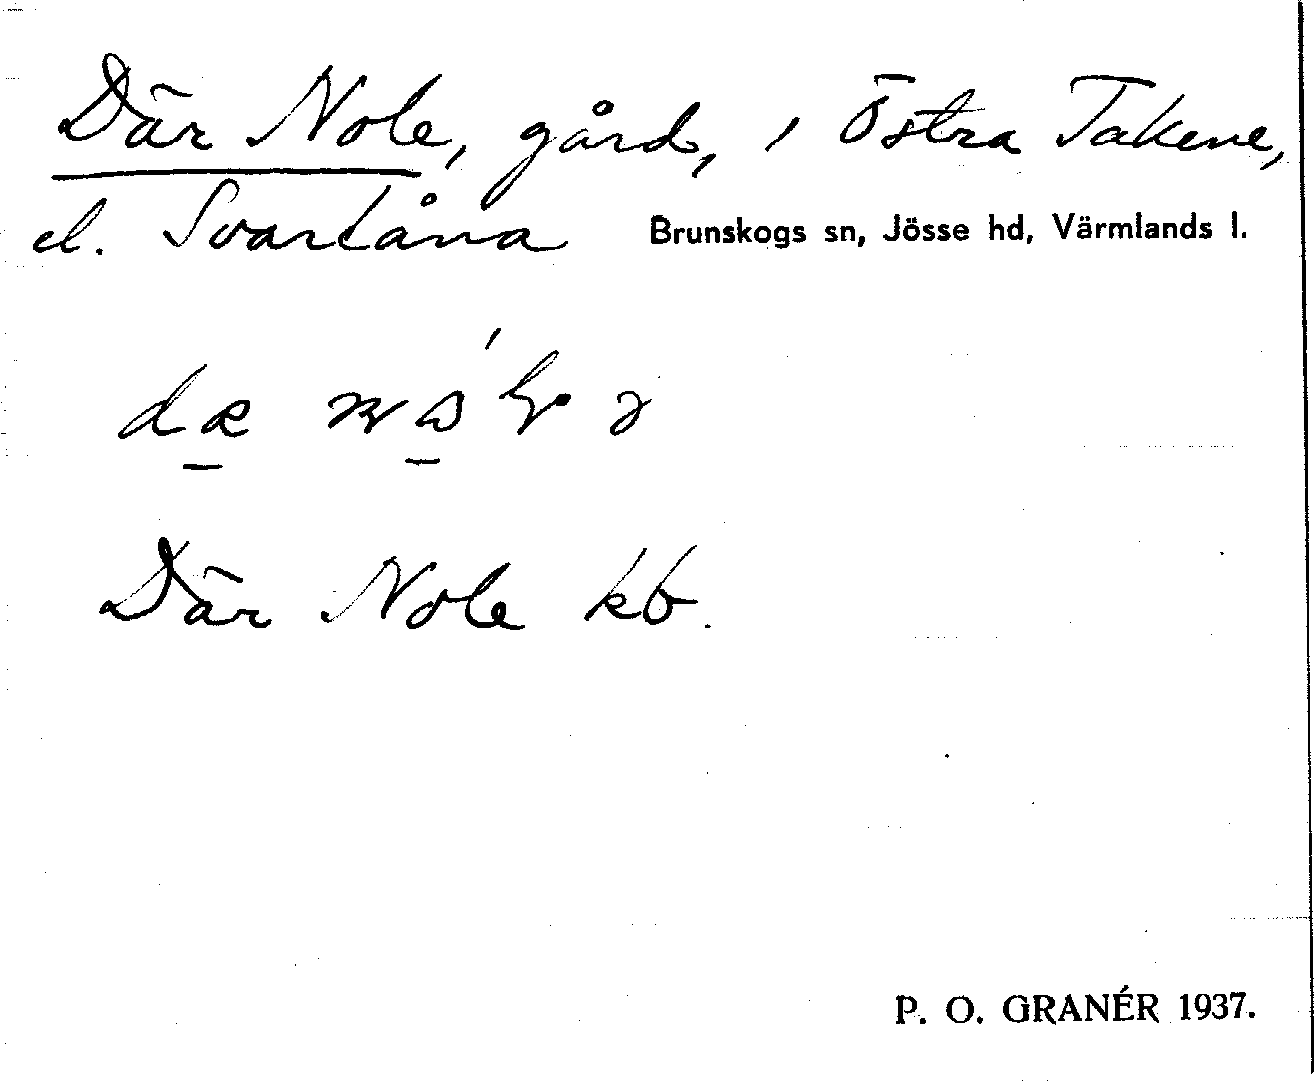 Där Nole, gård, i Östra Takene,
el. Svartåna Brunskogs sn, Jösse hd, Värmlands l.
Där Nole kb.
P. O. GRANÉR 1937.